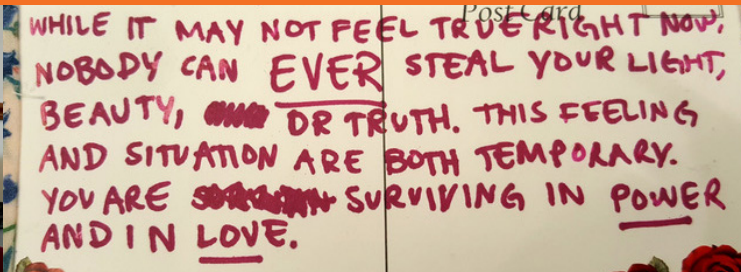 Post Card
WHILE IT MAY NOT FEEL TRUE RIGHT NOW,
NOBODY CAN EVER STEAL YOUR LIGHT,
BEAUTY, OR TRUTH. THIS FEELING
AND SITUATION ARE BOTH TEMPORARY.
YOU ARE SURVIVING IN POWER
AND IN LOVE.